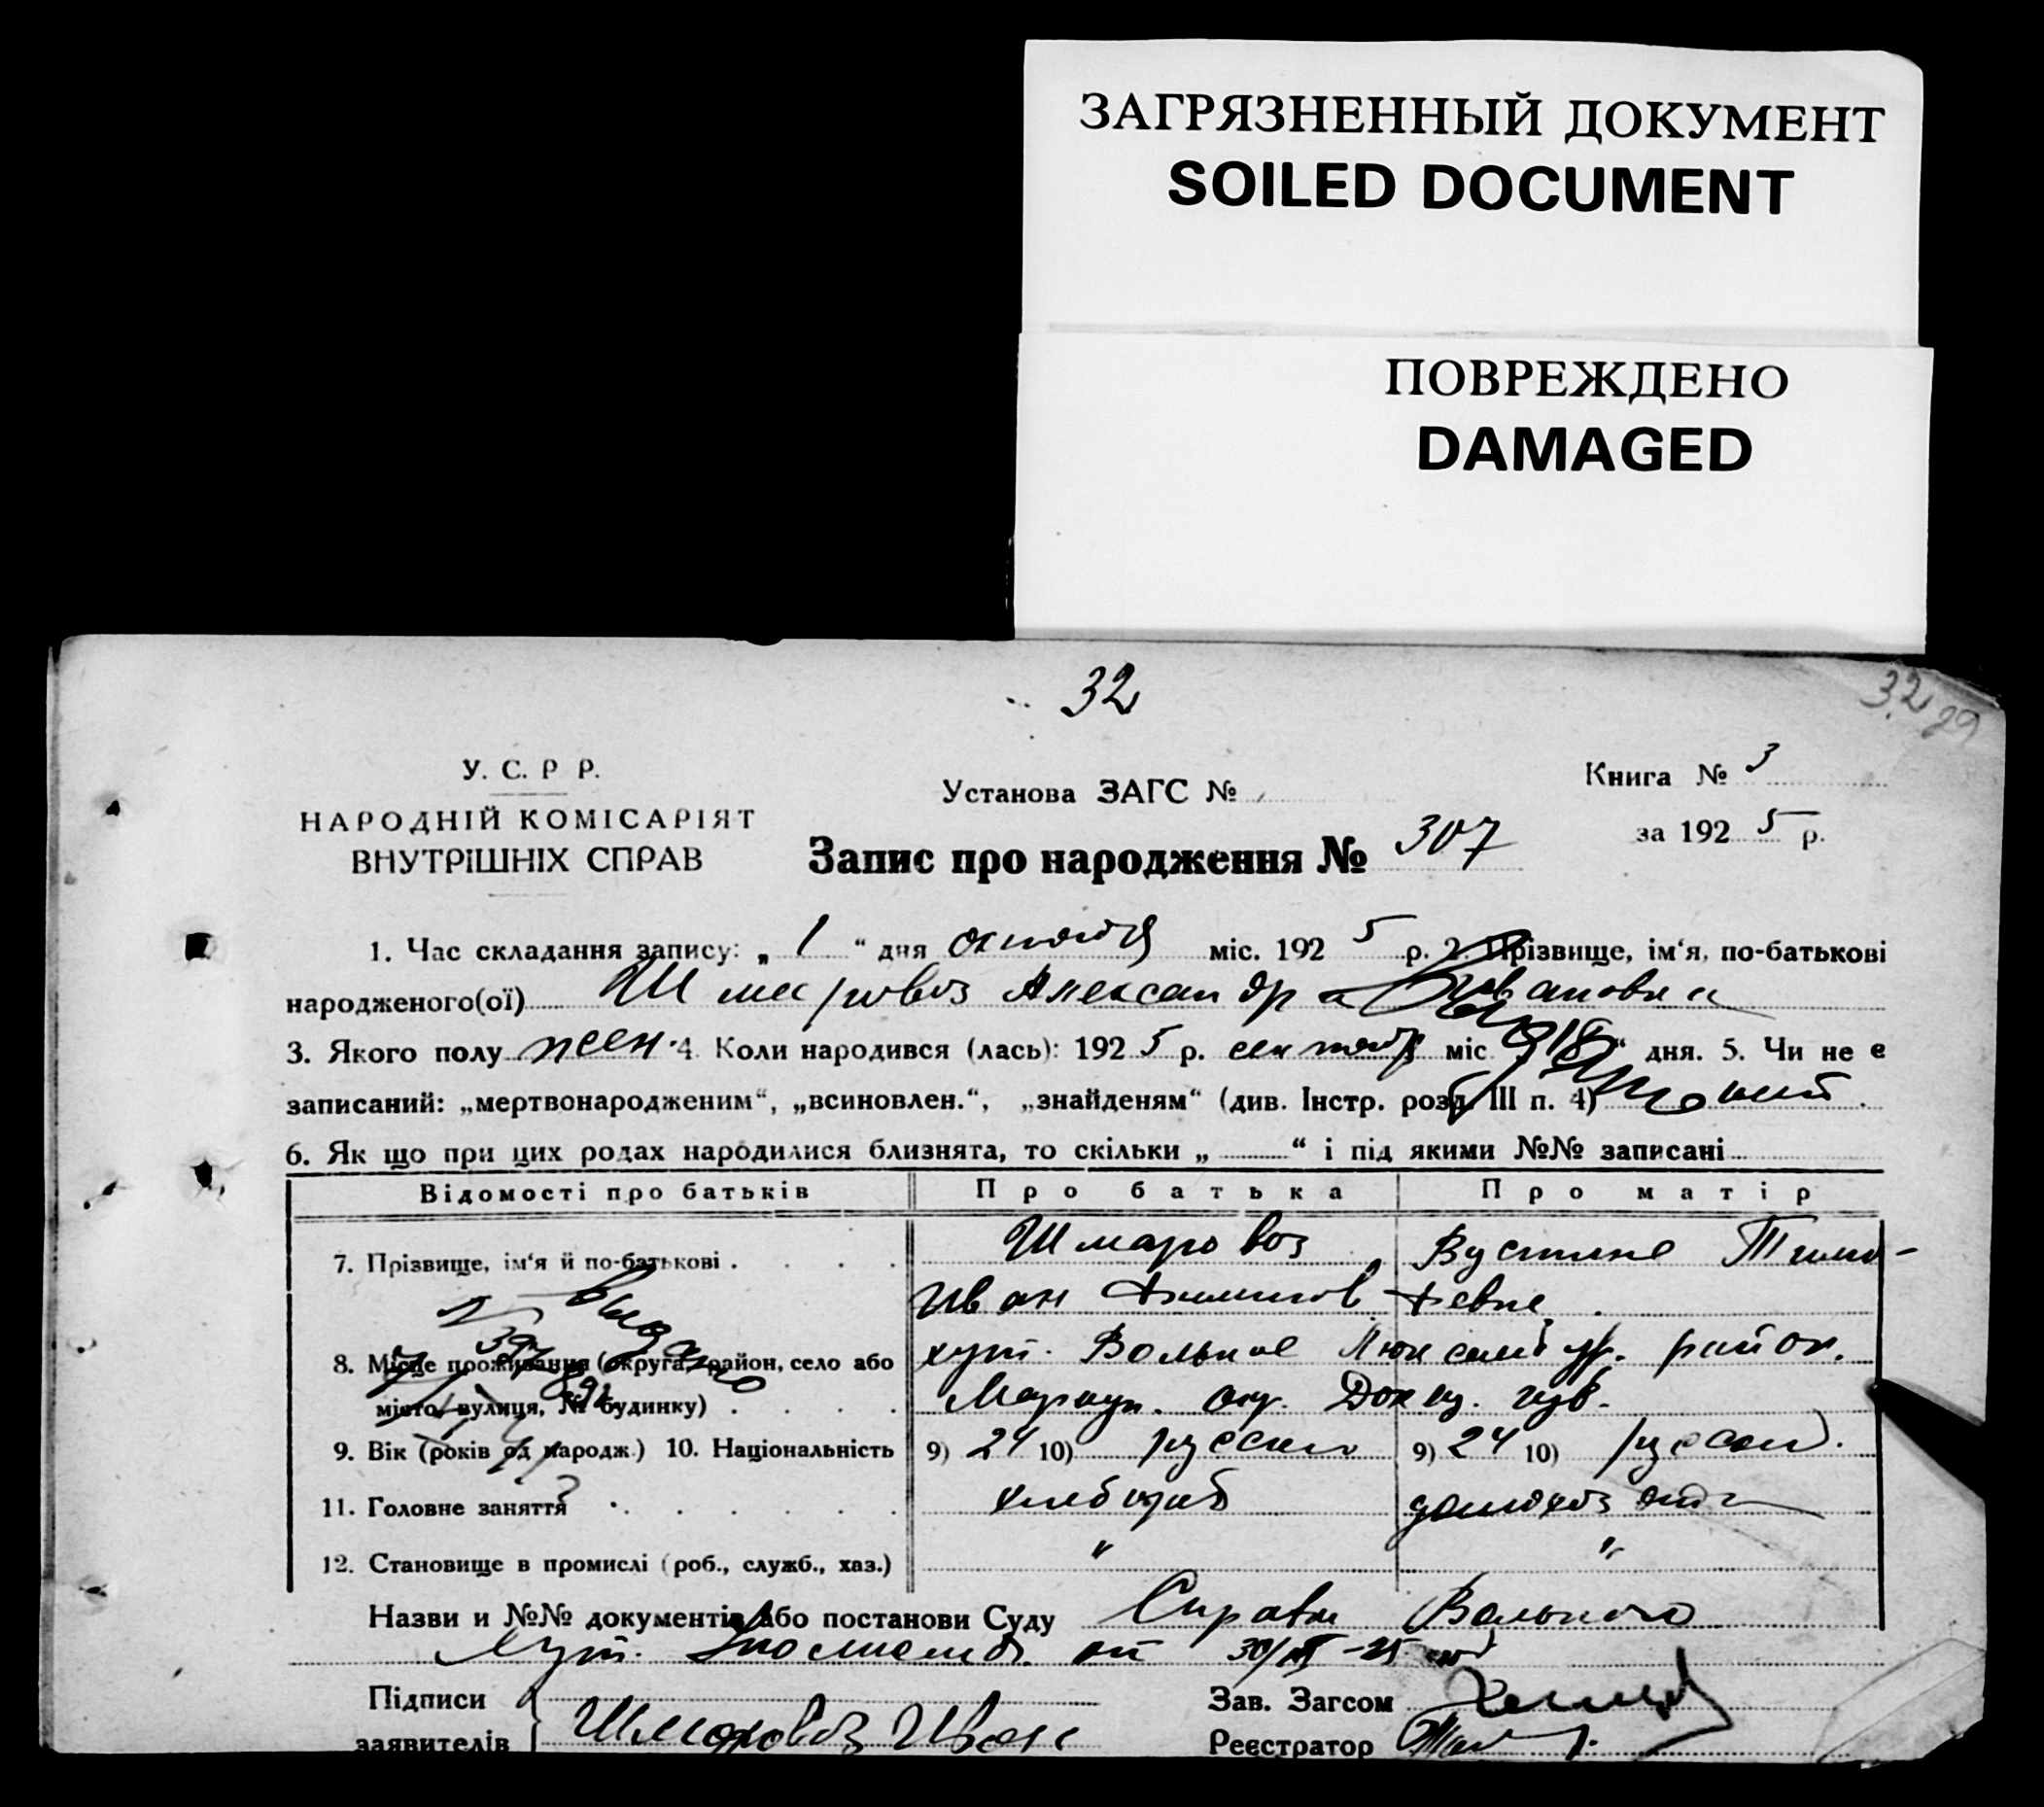 ЗАГРЯЗНЕННЫЙ ДОКУМЕНТ
SOILED DOCUMENT
ПОВРЕЖДЕНО
DAMAGED
32
32 29
У. С. Р Р.
НАРОДНІЙ КОМІСАРІЯТ
ВНУТРІШНІХ СПРАВ
Установа ЗАГС №
Запис про народження № 307
Книга № 3
за 192 5 р.
1. Час складання запису: „ 1 “ дня октября міс. 192 5 р. 2. Прізвище, ім‘я, по-батькові
народженого(ої) Шмаровоз Александра Ивановна
3. Якого полу жен. 4. Коли народився (лась): 192 5 р. сентябр міс. 18 “ дня. 5. Чи не є
записаний: „мертвонародженим“, „всиновлен.“, „знайденям“ (див. Інстр. розд. III п. 4)
6. Як що при цих родах народилися близнята, то скільки „ “ і під якими №№ записані
Відомості про батьків Про батька Про матір
7. Прізвище, ім‘я й по-батькові Шмаровоз Вустине Тимо-
Иван феевне.
8. Місце проживання (округа, район, село або хут. Вольное Люксембур. район.
місто, вулиця, № будинку) Мариуп. окр. Донец. губ.
9. Вік (років од народж.) 10. Національність 9) 24 10) русский 9) 24 10) русская.
11. Головне заняття хлебороб домохоз
12. Становище в промислі (роб., служб., хаз.) " "
Назви и №№ документів або постанови Суду Справка Вольного
хут. от 30/IX-25
Підписи
заявителів Шмаровоз Иван
Зав. Загсом
Реєстратор